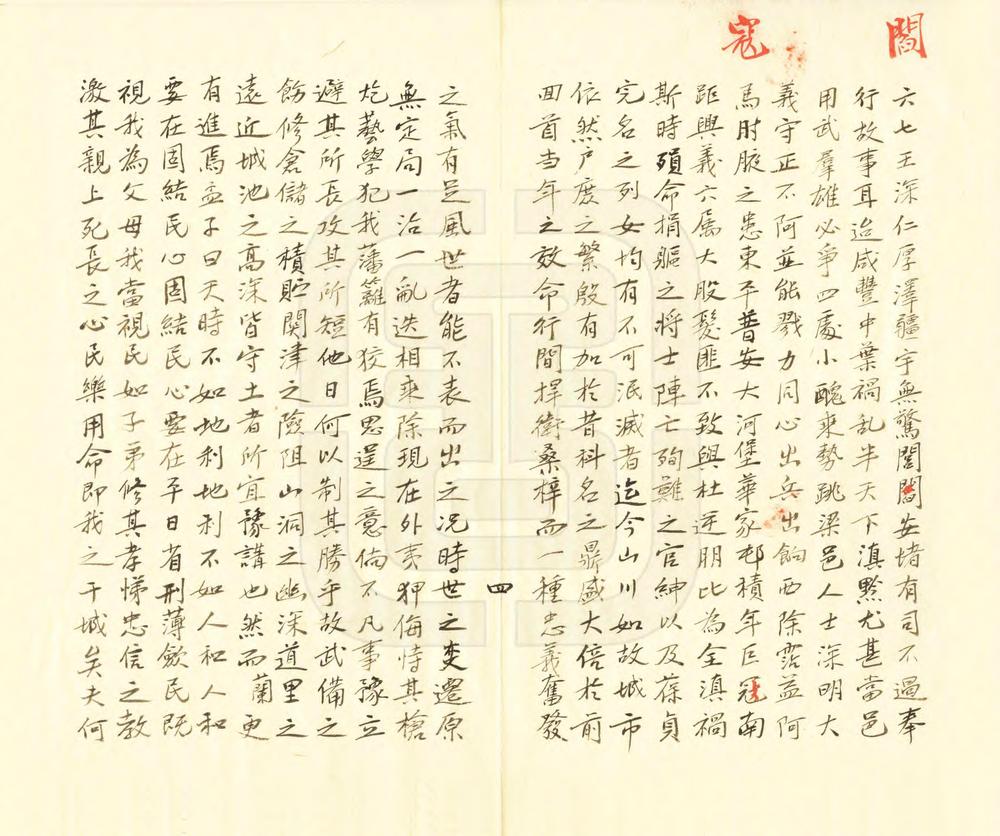 閻
寇
六七王深仁厚澤疆宇無驚閭閻安堵有司不過奉
行故事耳迨咸豐中葉禍乱半天下滇黔尤甚當邑
用武羣雄必爭四處小醜乘勢跳梁邑人士深明大
義守正不阿並能戮力同心出兵出餉西除霑益阿
馬肘腋之患東平普安大河堡華家邨積年巨冦南
距興義六属大股髮匪不致與杜逆朋比為全滇禍
斯時殞命捐軀之將士陣亡殉難之官紳以及葆貞
完名之列女均有不可泯滅者迄今山川如故城市
依然户度之繁殷有加於昔科名之鼎盛大倍於前
囬首当年之效命行間捍衛桑梓而一種忠義奮發
四
之氣有足風世者能不表而出之况時世之变遷原
無定局一治一亂迭相乘除現在外夷狎侮恃其槍
炮藝學犯我藩籬有狡焉思逞之意倘不凡事豫立
避其所長攻其所短他日何以制其勝乎故武備之
飭修倉儲之積貯関津之險阻山洞之幽深道里之
遠近城池之高深皆守土者所宜豫講也然而蘭更
有進焉孟子曰天時不如地利地利不如人和人和
要在固結民心固結民心要在平日省刑薄歛民既
視我為父母我當視民如子弟修其孝悌忠信之教
激其親上死長之心民樂用命即我之干城矣夫何